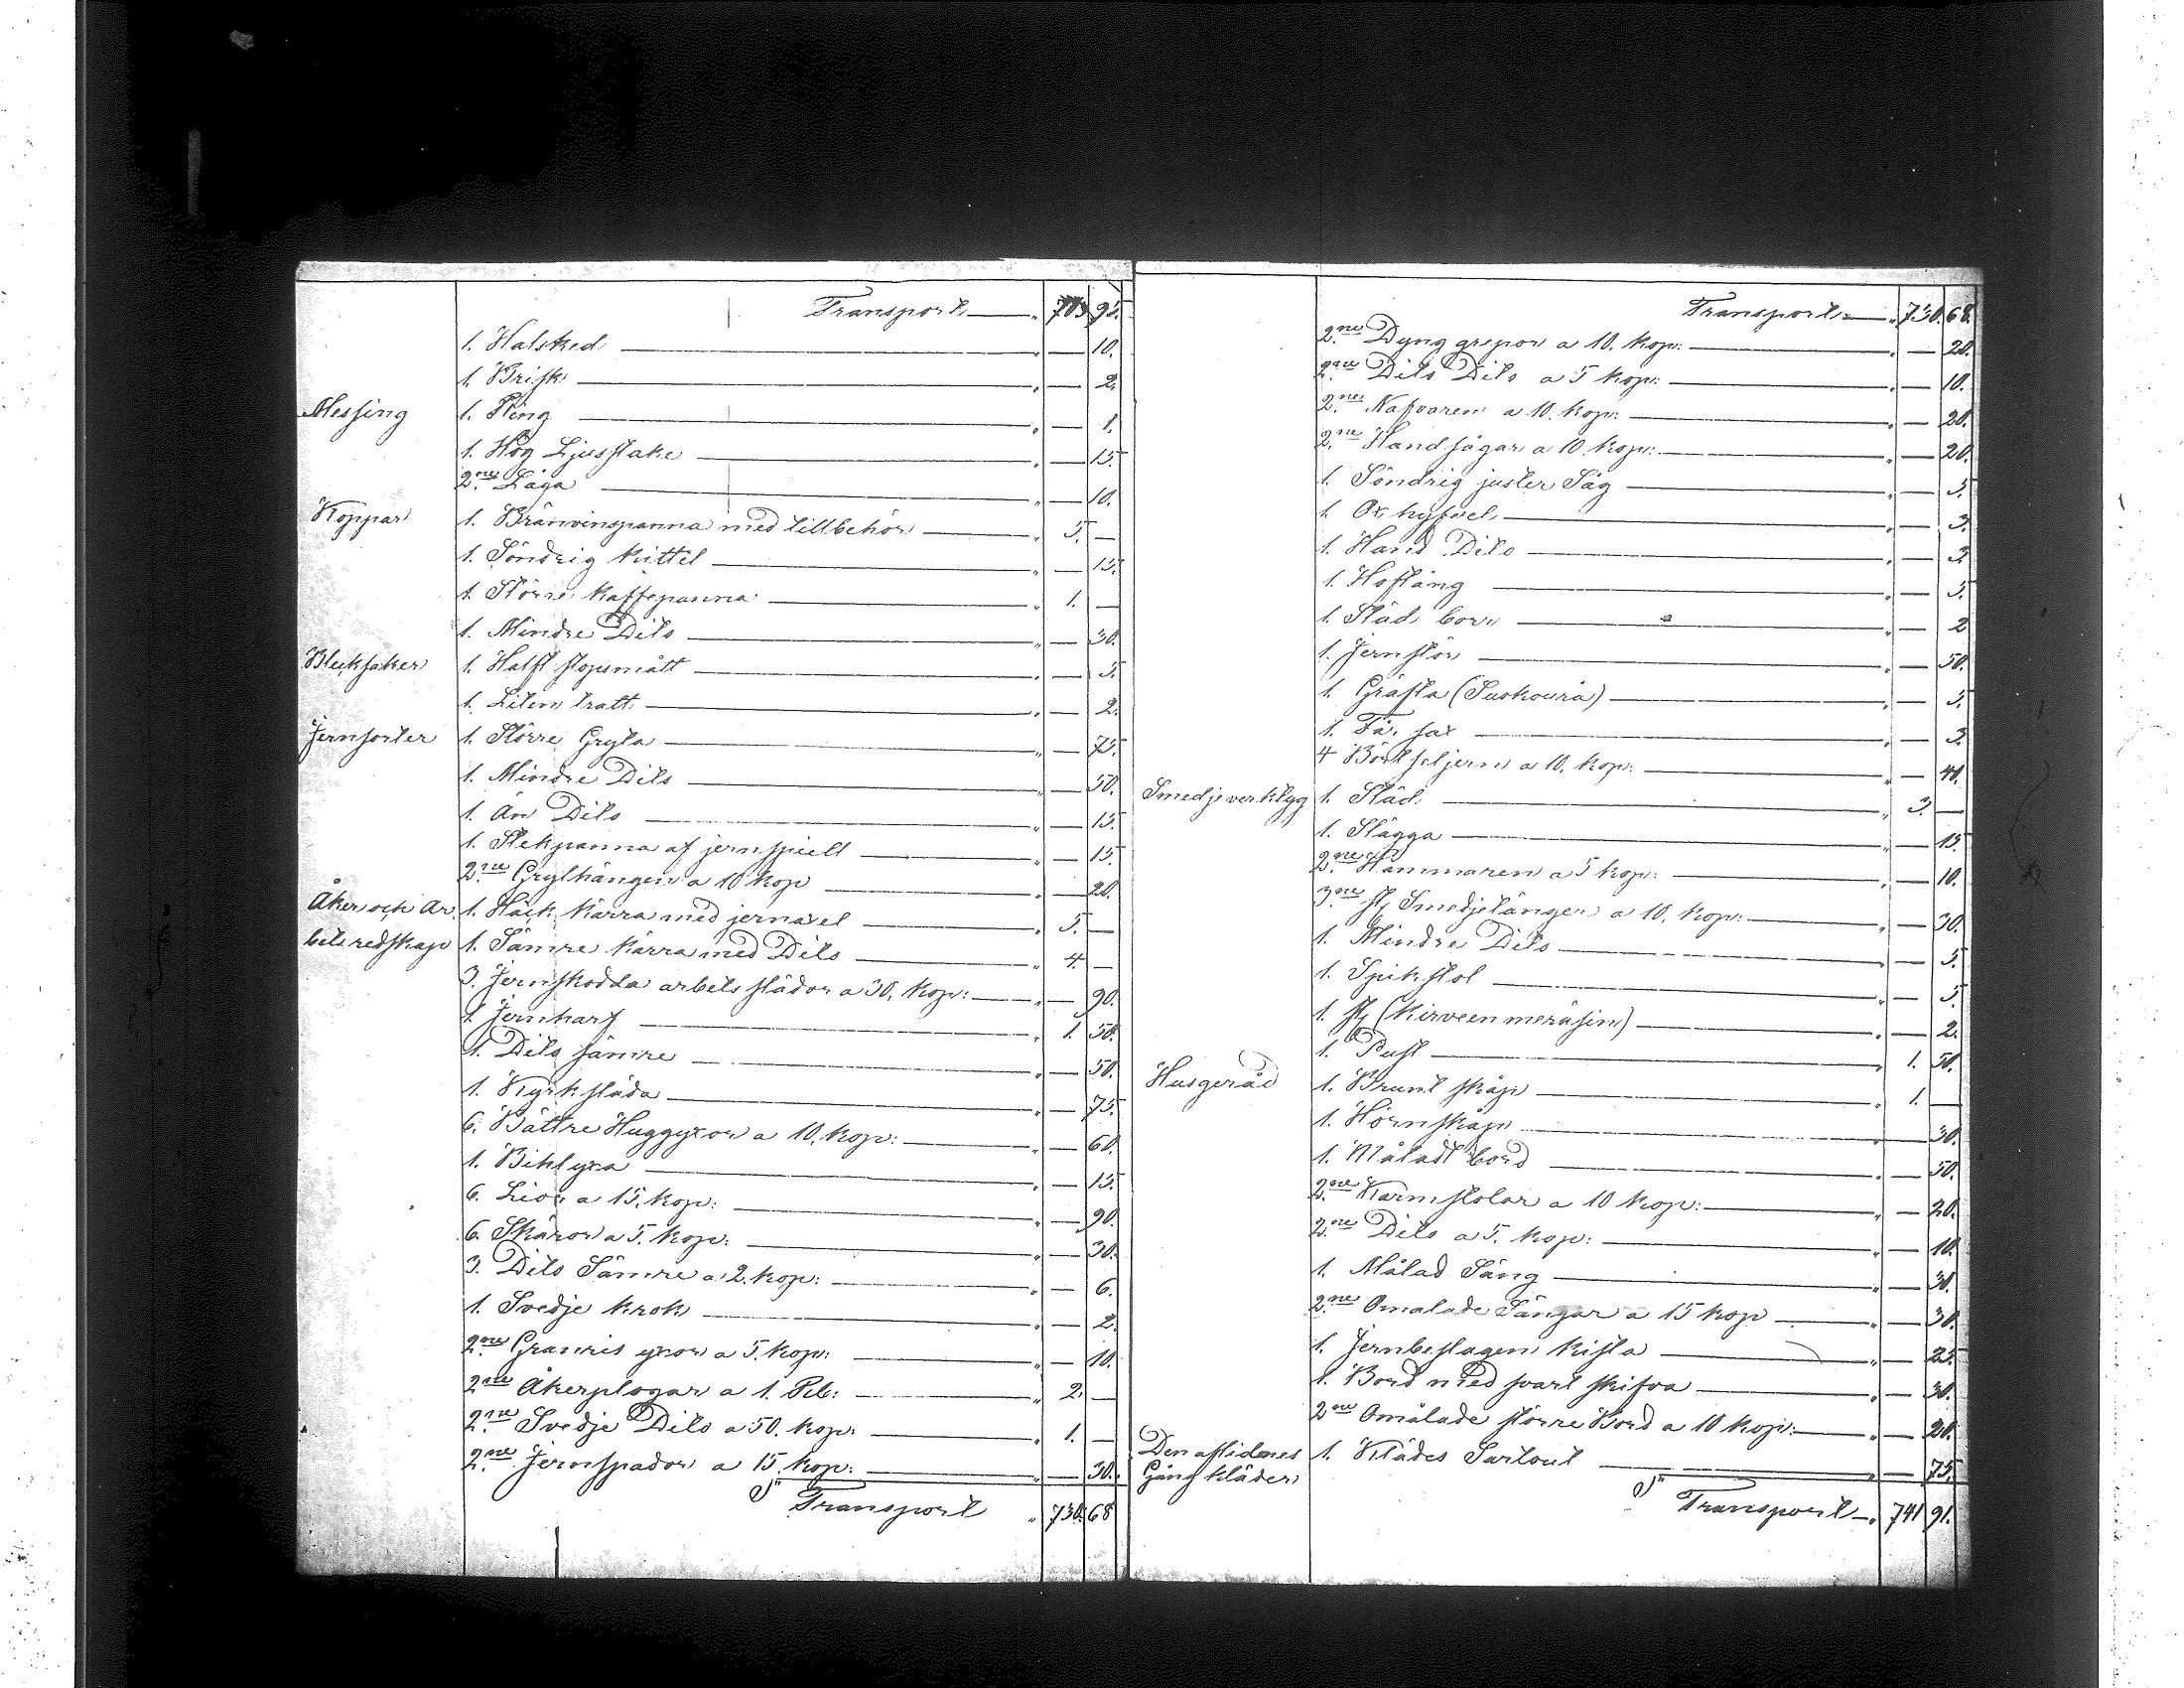 Transport — „ 703 95.
1. Halsked — „ — 10.
1. Brisk — „ — 2.
Messing 1. Ring — „ — 1.
1. Hög Ljusstake — „ — 15.
2.ne Låga — „ — 10.
Koppar 1. Bränvinspanna med tillbehör — „ 5. —
1. Söndrig kittel — „ — 15.
1. Större kaffepanna — „ 1. —
1. Mindre Dito — „ — 30.
Blecksaker 1. Halft stopsmått — „ — 5.
1. Liten tratt — „ — 2.
Jernsorter 1. Större Gryta — „ — 75.
1. Mindre Dito — „ — 50.
1. än Dito — „ — 15.
1. Stekpanna af jernspiell — „ — 15.
2.ne Grythängen a 10 kop — „ — 20.
Åker och Ar- 1. Häck kärra med jernaxel — „ 5. —
bets redskap 1. Sämre kärra med Dito — „ 4. —
3. Jernskodda arbets slädor a 30. kop: — „ — 90.
1. Jernharf — „ 1. 50.
1. Dito sämre — „ — 50.
1. Kyrksläda — „ — 75.
6. Bättre Huggyxor a 10. kop: — „ — 60.
1. Bihlyxa — „ — 15.
6. Liar a 15. kop: — „ — 90.
6. Skäror a 5. kop: — „ — 30.
3. Dito Sämre a 2. kop: — „ — 6.
1. Svedje krok — „ — 2.
2.ne Granris yxor a 5. kop: — „ — 10.
2.ne Åkerplogar a 1. Rub: — „ 2. —
2.ne Svedje Dito a 50. kop: — „ 1. —
2.ne Jernspador a 15. kop: — „ — 30.
Transport „ 730. 68
Transport — „ 730. 68.
2.ne Dyng grepor a 10. kop: — „ — 20.
2.ne Dito Dito a 5 kop: — „ — 10.
2.ne Nafvaren a 10. kop: — „ — 20.
2.ne Handsågar a 10. kop: — „ — 20.
1. Söndrig juster Såg — „ — 5.
1. Ox hyfvel — „ — 3.
1. Hand Dito — „ — 3
1. Hoftång — „ — 5.
1. Städ borr — „ — 2
1. Jernstör — „ — 50.
1. Gräfta (Suokourå) — „ — 5.
1. Få. sax — „ — 3.
4 Bördseljern a 10. kop: — „ — 40.
Smedjeverktyg 1. Städ — „ 3. —
1. Slägga — „ — 15
2.ne Hammaren a 5 kop: — „ — 10.
3.ne st. Smedjetänger a 10. kop: — „ — 30.
1. Mindre Dito — „ — 5.
1. Spikstol — „ — 5.
1. st. (Kirveen meräsin) — „ — 2.
1. Pust — „ 1. 50.
Husgeråd 1. Brunt skåp — „ 1. —
1. Hörnskåp — „ — 30.
1. Måladt bord — „ — 50.
2.ne Karmstolar a 10 kop: — „ — 20.
2.ne Dito a 5. kop: — „ — 10.
1. Målad Säng — „ — 30.
2.ne Omalade Sängar a 15 kop — „ — 30.
1. Jernbeslagen kista — „ — 25.
1. Bord med svart skifva — „ — 30.
2.ne Omålade större Bord a 10 kop: — „ — 20.
Den aflidnes 1. Klädes Surtout — „ — 75.
Gångkläder
Transport — „ 741 91.